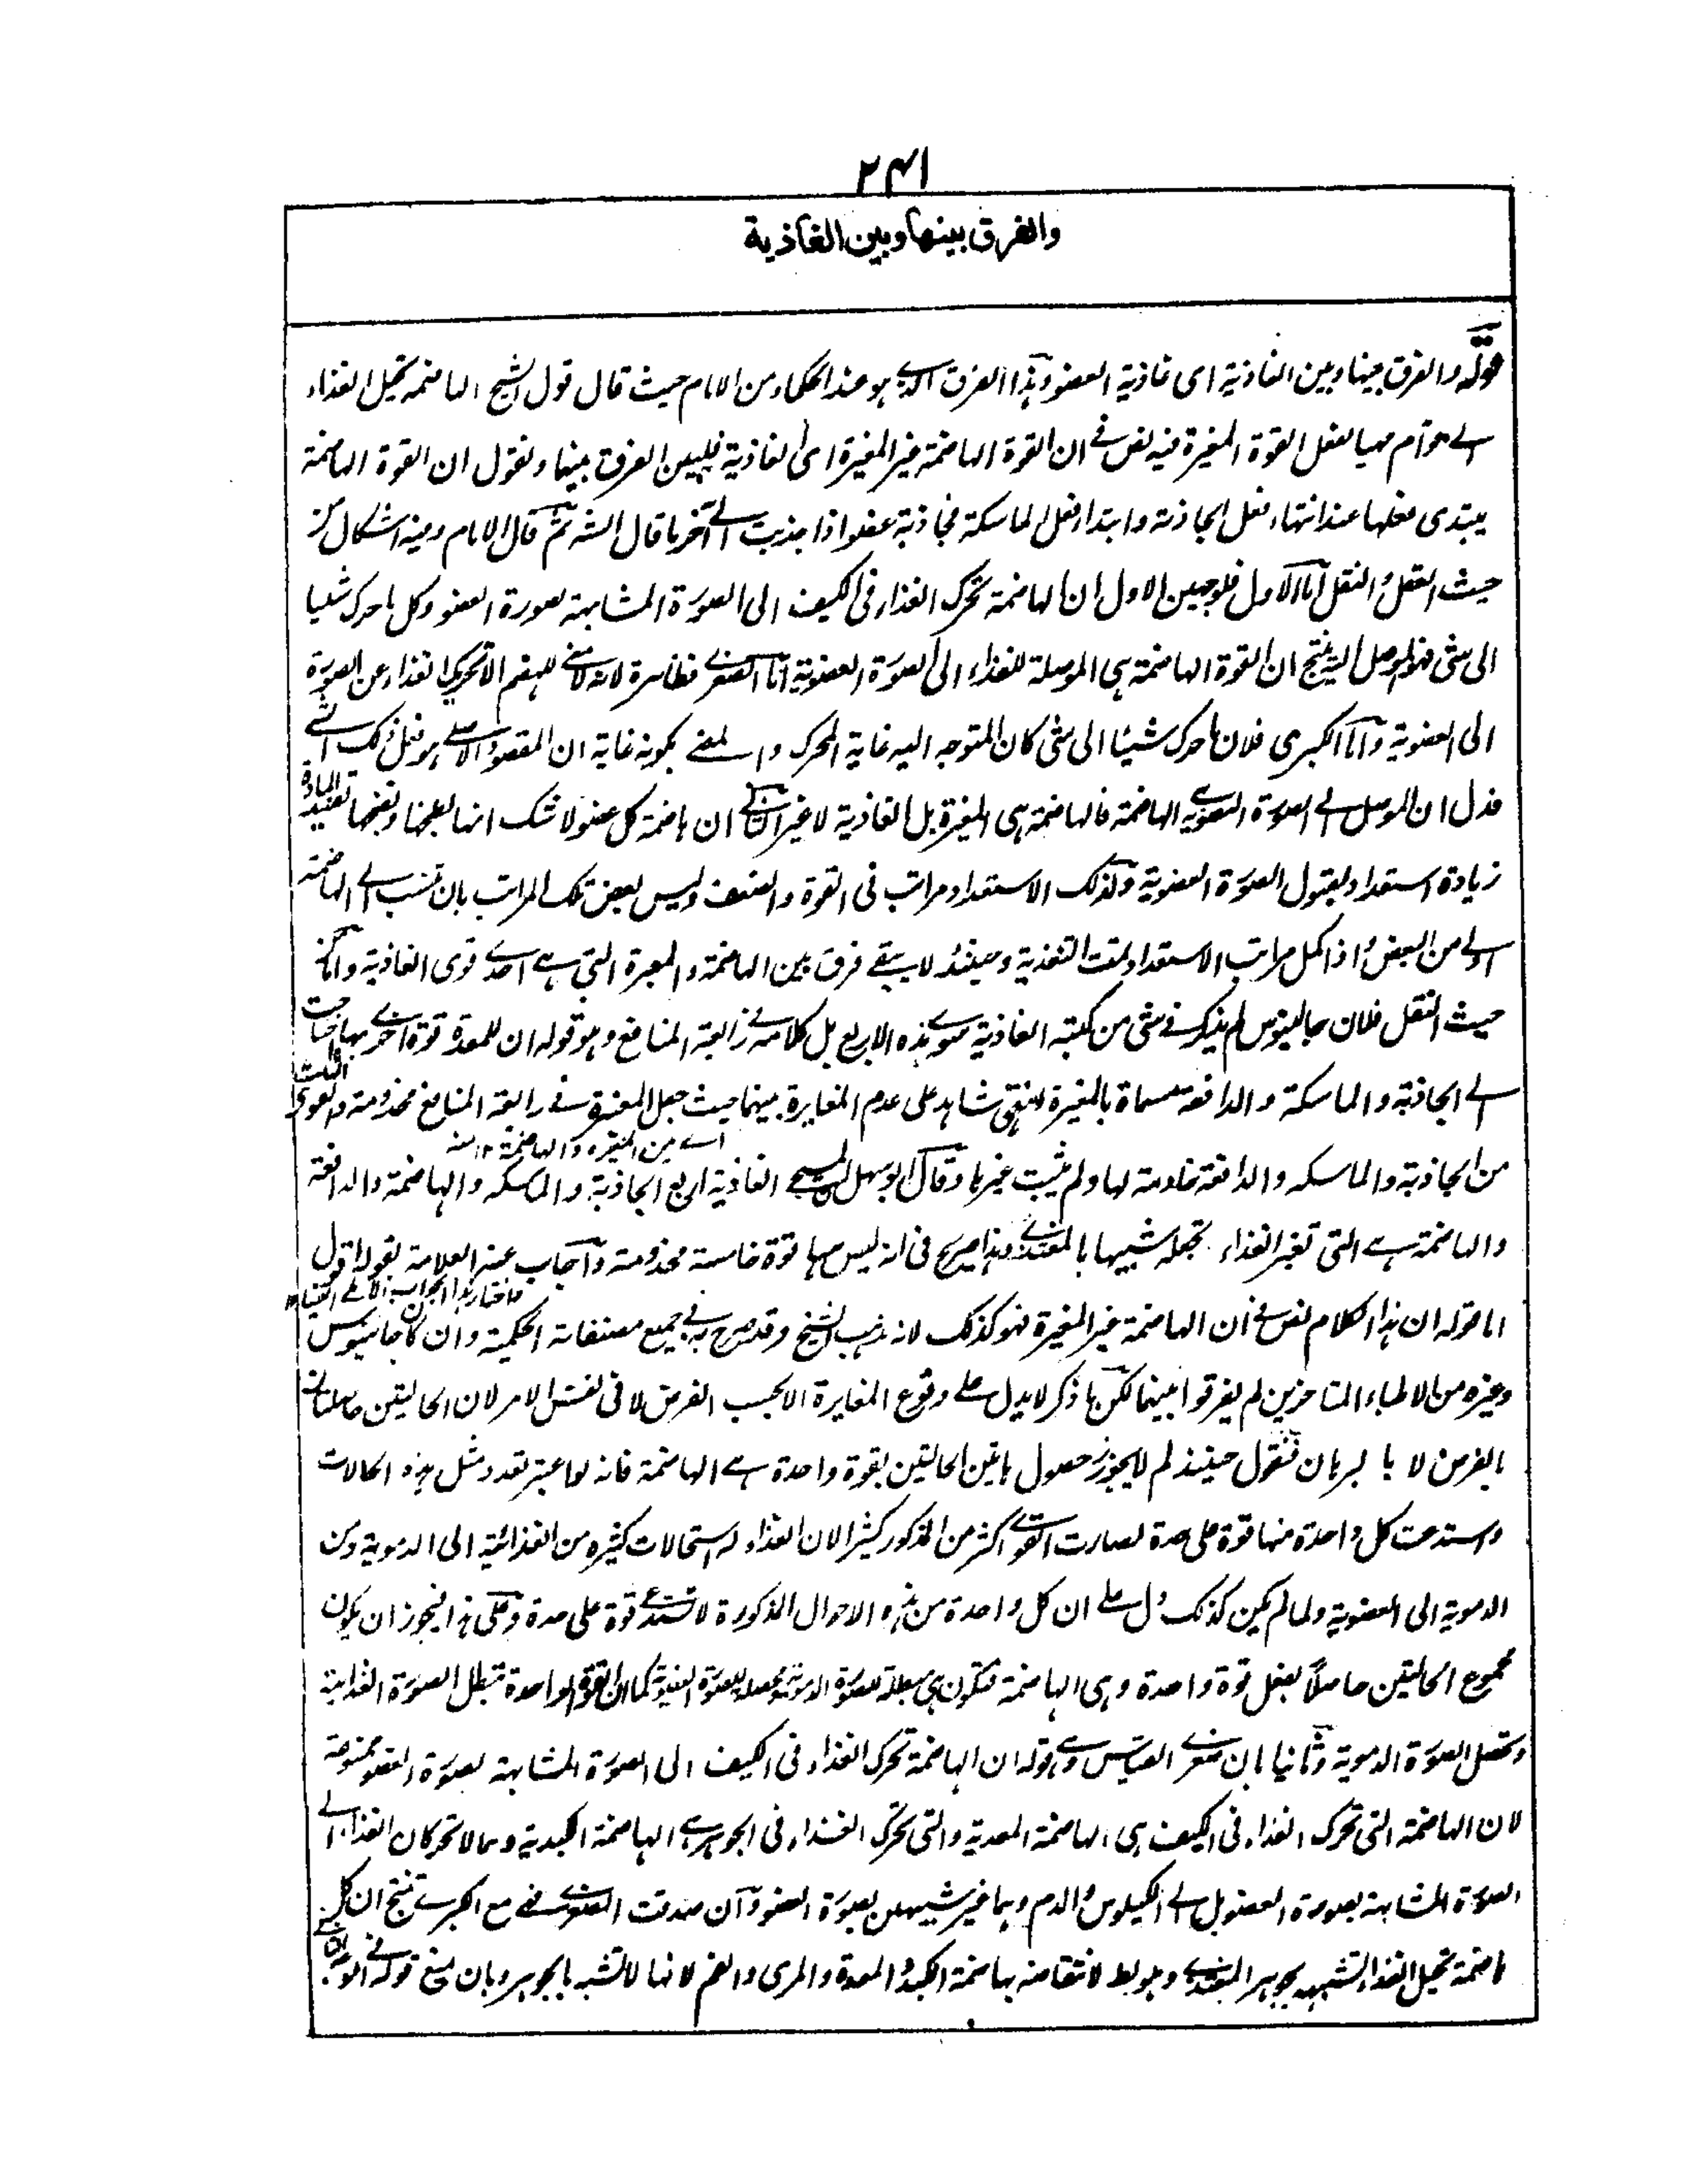 ٢٤١
والفرق بينها وبين الغاذية
قوله والفرق بينها وبين الغاذية اى غاذية العضو وهذا الفرق الذي هو عند الحكماء من الامام حيث قال قول الشيخ الهاضمة تحيل الغذاء
الى قوام مهيا لفعل القوة المغيرة فيه نص في ان القوة الهاضمة غير المغيرة اى الغاذية فليبين الفرق بينها ونقول ان القوة الهاضمة
يبتدى فعلها عند انتهاء فعل الجاذبة وابتداء فعل الماسكة فجاذبة عضو اذا جذبت الى آخر ما قال الشه ثم قال الامام وفيه اشكال من
حيث العقل والنقل اما الاول فلوجهين الاول ان الهاضمة تحرك الغذاء فى الكيف الى الصورة المشابهة لصورة العضو وكل ما حرك شيئا
الى شئ فهو الموصل اليه ينتج ان القوة الهاضمة هى الموصلة للغذاء الى الصورة العضوية اما الصغرى فظاهرة لانه لا معنى للهضم الا تحريك الغذاء عن الصورة
الى العضوية واما الكبرى فلان ما حرك شيئا الى شئ كان المتوجه اليه غاية المحرك والمعنى بكونه غاية ان المقصود الاصلى هو فعل ذلك الشئ
فدل ان الموصل الى الصورة العضوية الهاضمة فالهاضمة هى المغيرة بل الغاذية لا غير الثانى ان هاضمة كل عضو لا شك انها بطبخها ونضجها تفيد المادة
زيادة استعداد لقبول الصورة العضوية ولذلك الاستعداد مراتب فى القوة والضعف وليس بعض تلك المراتب بان تنسب الى الهاضمة
اولى من البعض واذا كمل مراتب الاستعداد تمت التغذية وحينئذ لا يبقى فرق بين الهاضمة والمغيرة التي هي احدى قوى الغاذية واما من
حيث النقل فلان جالينوس لم يذكر في شئ من كتبه الغاذية سوى هذه الاربع بل كلامه في رابعة المنافع وهو قوله ان للمعدة قوة اخرى بها احتاجت
الى الجاذبة والماسكة والدافعة مسماة بالمغيرة انتهى شاهد على عدم المغايرة بينهما حيث جعل المغيرة في رابعة المنافع مخدومة والقوى الثلث
اى بين المغيره والهاضمة ١٢ منه
من الجاذبة والماسكه والدافعة خادمة لها ولم يثبت غيرها وقال ابو سهل المسيحى الغاذية اربع الجاذبة والماسكه والهاضمة والدافعة
والهاضمة هي التى تغير الغذاء تجعله شبيها بالمغتذى وهذا صريح فى انه ليس هاهنا قوة خامسة مخدومة واجاب عنه العلامة بقوله اقول
اما قوله ان هذا الكلام نص في ان الهاضمة غير المغيرة فهو كذلك لانه مذهب الشيخ وقد صرح به في جميع مصنفاته الحكمية وان كان جالينوس
وغيره من الاطباء المتاخرين لم يفرقوا بينهما لكن ما ذكر لا يدل على وقوع المغايرة الا بحسب الفرض لا فى نفس الامر لان الحالتين حاصلتان
بالفرض لا بالبرهان فنقول حينئذ لم لا يجوز حصول هاتين الحالتين بقوة واحدة هي الهاضمة فانه لو اعتبر تعدد مثل هذه الحالات
واستدعت كل واحدة منها قوة على حدة لصارت القوى اكثر من المذكور كثيرا لان الغذاء له استحالات كثيره من الغذائية الى الدموية ومن
الدموية الى العضوية ولما لم يكن كذلك دل على ان كل واحدة من هذه الاحوال المذكورة لا تستدعى قوة على حدة وعلى هذا فيجوز ان يكون
مجموع الحالتين حاصلا بفعل قوة واحدة وهى الهاضمة فتكون هى مبطلة للصورة الدموية ومحصلة للصورة العضوية كما ان القوة الواحدة تبطل الصورة الغذائية
وتحصل الصورة الدموية وثانيا بان صغرى القياس وهي قوله ان الهاضمة تحرك الغذاء فى الكيف الى الصورة المشابهة لصورة العضو ممنوعة
لان الهاضمة التى تحرك الغذاء فى الكيف هى الهاضمة المعدية والتى تحرك الغذاء فى الجوهر هي الهاضمة الكبدية وهما لا تحركان الغذاء الى
الصورة المشابهة بصورة العضو بل الى الكيلوس والدم وهما غير شبيهين بصورة العضو وان صدقت الصغرى فهي مع الكبرى تنتج ان كل
هاضمة تحيل الغذاء لتشبهه بجوهر المغتذى وهو بط لانتقاضه بهاضمة الكبد والمعدة والمرى والفم لانها لا تشبه بالجوهر وبان منع قوله في